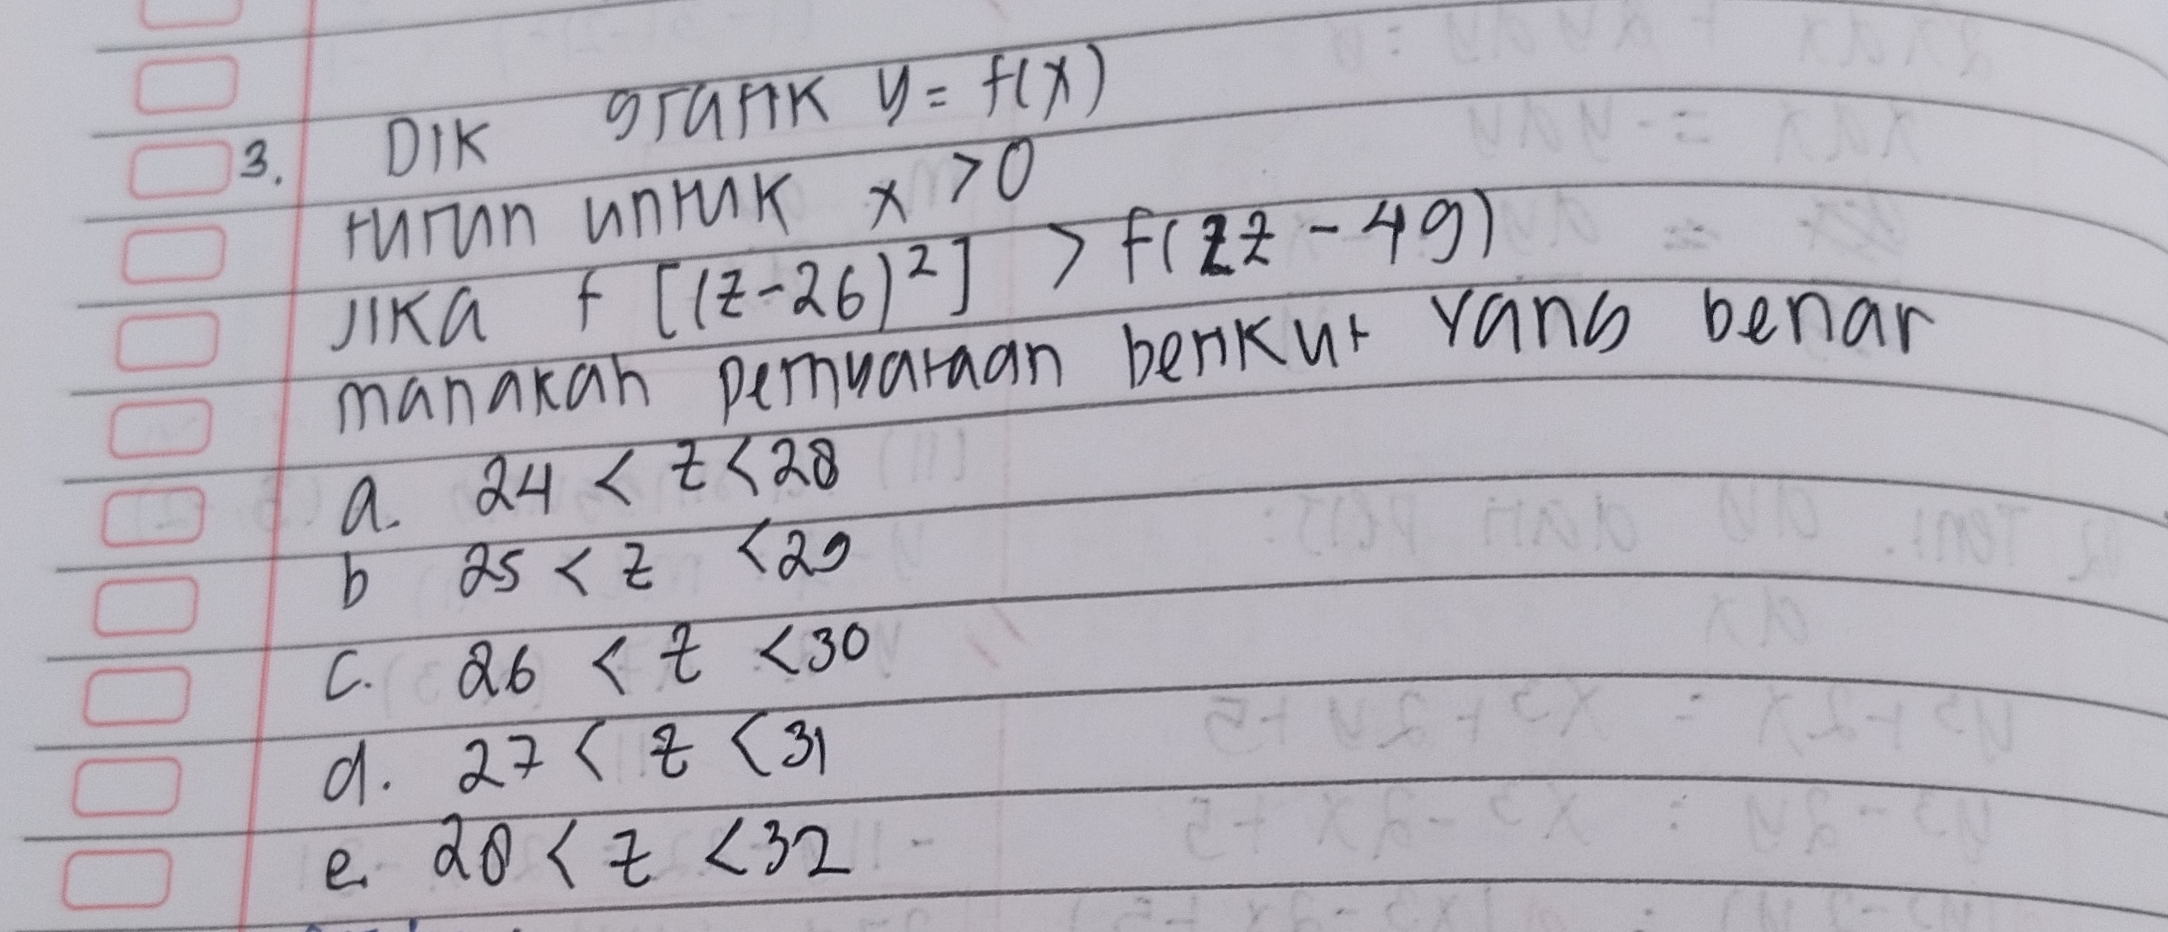 3. DIK grafik y = f(x)
turun untuk x > 0
JIKA f [(z-26)²] > f(2z - 49)
manakah pernyataan berikut yang benar
a. 24 < z < 28
b 25 < z < 29
c. 26 < z < 30
d. 27 < z < 31
e. 28 < z < 32